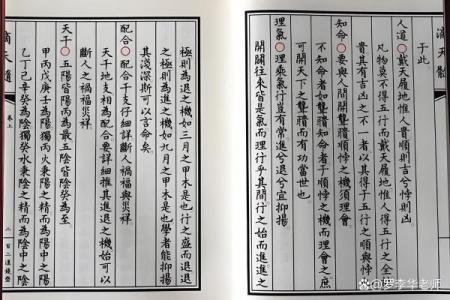 滴天髓
于此
人道○戴天履地惟人貴順則吉兮悖則凶
凡物莫不得五行而戴天履地惟人得五行之全
貴其有吉凶之不一者以其得于五行之順與悖
知命○要與人間開聾聵順悖之機須理會
不知命者如聾聵知命者于順悖之機而理會之庶
可開天下之聾聵而有功當世也
理氣○理乘氣行豈有常進兮退兮宜抑揚
開闔往來皆是氣而理行乎其間行之始而進進之
極則為退之機如三月之甲木是也行之盛而退退
之極則為進之機如九月之甲木是也學者能抑揚
其淺深斯可以言命矣
配合○配合干支仔細詳斷人禍福與災祥
天干地支相為配合要詳細推其進退之機始可以
斷人之禍福災祥矣
天干○五陽皆陽丙為最五陰皆陰癸為至
甲丙戊庚壬為陽獨丙火秉陽之精而為陽中之陽
乙丁己辛癸為陰獨癸水秉陰之精而為陰中之陰
滴天髓
卷上
二
百二漢鏡齋
@罗李华老师